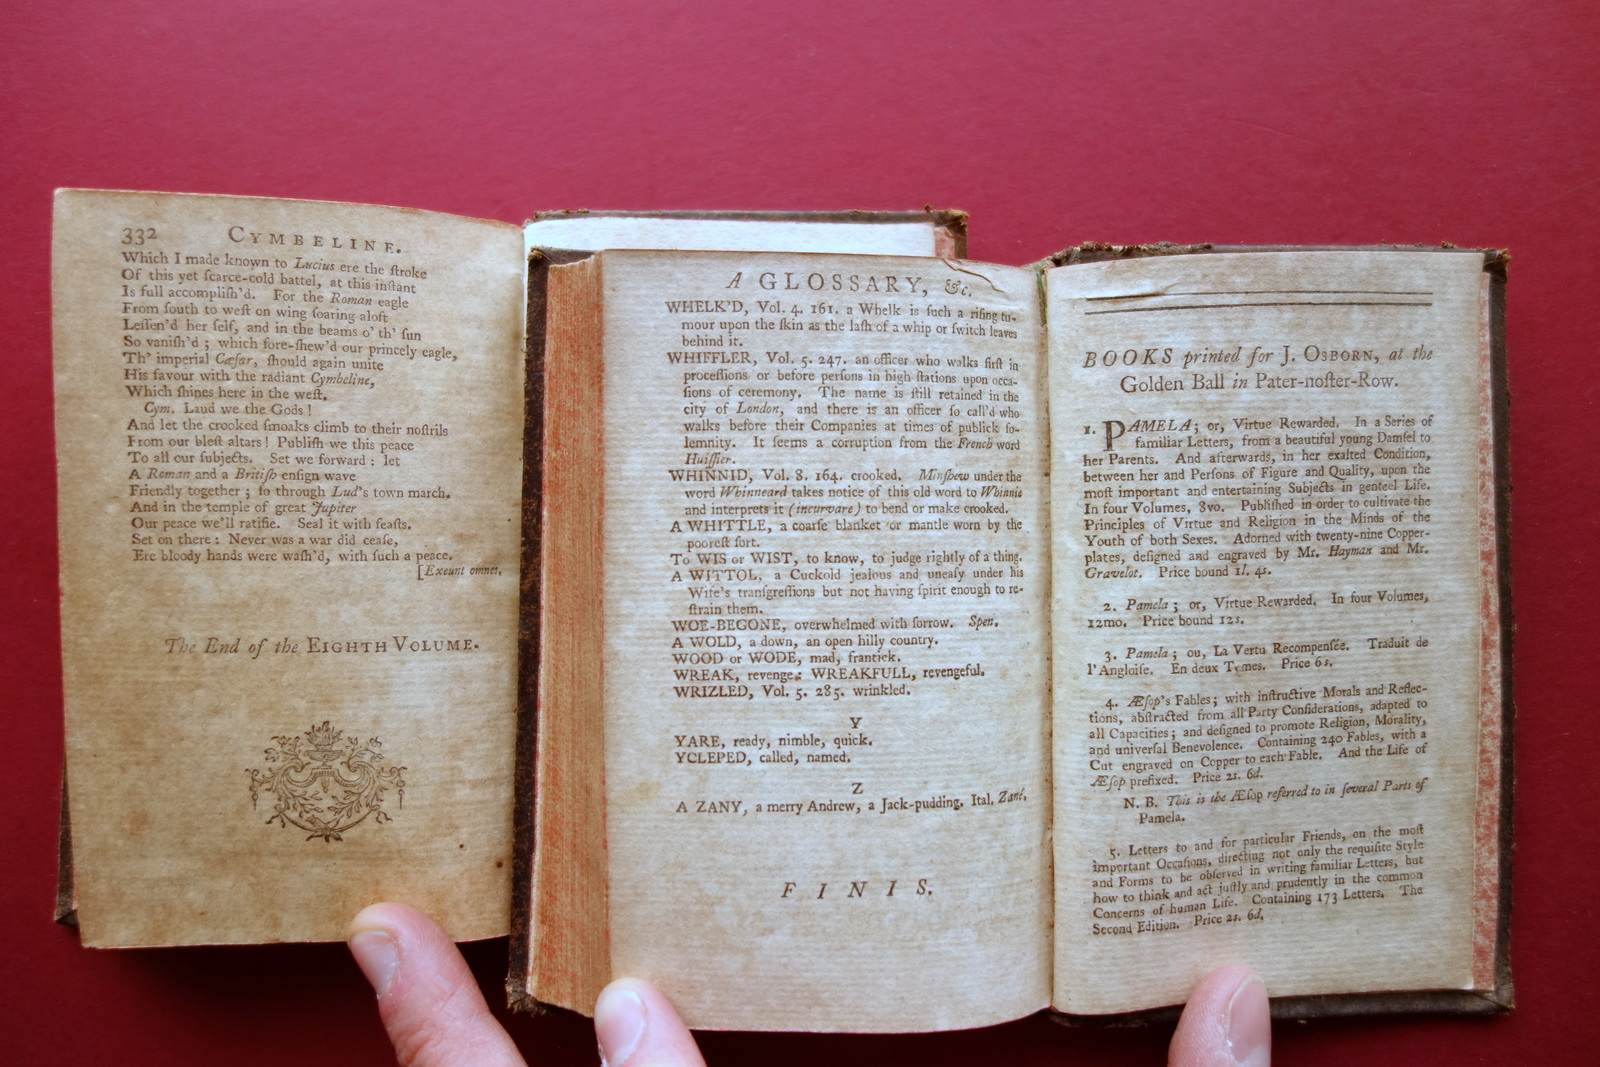 332 CYMBELINE.
Which I made known to Lucius ere the ſtroke
Of this yet ſcarce-cold battel, at this inſtant
Is full accompliſh'd. For the Roman eagle
From ſouth to weſt on wing ſoaring aloft
Leſſen'd her ſelf, and in the beams o' th' ſun
So vaniſh'd; which fore-ſhew'd our princely eagle,
Th' imperial Cæſar, ſhould again unite
His favour with the radiant Cymbeline,
Which ſhines here in the weſt.
Cym. Laud we the Gods!
And let the crooked ſmoaks climb to their noſtrils
From our bleſt altars! Publiſh we this peace
To all our ſubjects. Set we forward: let
A Roman and a Britiſh enſign wave
Friendly together; ſo through Lud's town march.
And in the temple of great Jupiter
Our peace we'll ratifie. Seal it with feaſts.
Set on there: Never was a war did ceaſe,
Ere bloody hands were waſh'd, with ſuch a peace.
[Exeunt omnes.
The End of the EIGHTH VOLUME.
A GLOSSARY, &c.
WHELK'D, Vol. 4. 161. a Whelk is ſuch a riſing tu-
mour upon the ſkin as the laſh of a whip or ſwitch leaves
behind it.
WHIFFLER, Vol. 5. 247. an officer who walks firſt in
proceſſions or before perſons in high ſtations upon occa-
ſions of ceremony. The name is ſtill retained in the
city of London, and there is an officer ſo call'd who
walks before their Companies at times of publick ſo-
lemnity. It ſeems a corruption from the French word
Huiſſier.
WHINNID, Vol. 8. 164. crooked. Minſhew under the
word Whinneard takes notice of this old word to Whinnie
and interprets it (incurvare) to bend or make crooked.
A WHITTLE, a coarſe blanket or mantle worn by the
pooreſt ſort.
To WIS or WIST, to know, to judge rightly of a thing.
A WITTOL, a Cuckold jealous and uneaſy under his
Wife's tranſgreſſions but not having ſpirit enough to re-
ſtrain them.
WOE-BEGONE, overwhelmed with ſorrow. Spen.
A WOLD, a down, an open hilly country.
WOOD or WODE, mad, frantick.
WREAK, revenge: WREAKFULL, revengeful.
WRIZLED, Vol. 5. 285. wrinkled.
Y
YARE, ready, nimble, quick.
YCLEPED, called, named.
Z
A ZANY, a merry Andrew, a Jack-pudding. Ital. Zané.
FINIS.
BOOKS printed for J. OSBORN, at the
Golden Ball in Pater-noſter-Row.
1. PAMELA; or, Virtue Rewarded. In a Series of
familiar Letters, from a beautiful young Damſel to
her Parents. And afterwards, in her exalted Condition,
between her and Perſons of Figure and Quality, upon the
moſt important and entertaining Subjects in genteel Life.
In four Volumes, 8vo. Publiſhed in order to cultivate the
Principles of Virtue and Religion in the Minds of the
Youth of both Sexes. Adorned with twenty-nine Copper-
plates, deſigned and engraved by Mr. Hayman and Mr.
Gravelot. Price bound 1l. 4s.
2. Pamela; or, Virtue Rewarded. In four Volumes,
12mo. Price bound 12s.
3. Pamela; ou, La Vertu Recompenſée. Traduit de
l'Angloiſe. En deux Tomes. Price 6s.
4. Æſop's Fables; with inſtructive Morals and Reflec-
tions, abſtracted from all Party Conſiderations, adapted to
all Capacities; and deſigned to promote Religion, Morality,
and univerſal Benevolence. Containing 240 Fables, with a
Cut engraved on Copper to each Fable. And the Life of
Æſop prefixed. Price 2s. 6d.
N. B. This is the Æſop referred to in ſeveral Parts of
Pamela.
5. Letters to and for particular Friends, on the moſt
important Occaſions, directing not only the requiſite Style
and Forms to be obſerved in writing familiar Letters, but
how to think and act juſtly and prudently in the common
Concerns of human Life. Containing 173 Letters. The
Second Edition. Price 2s. 6d.